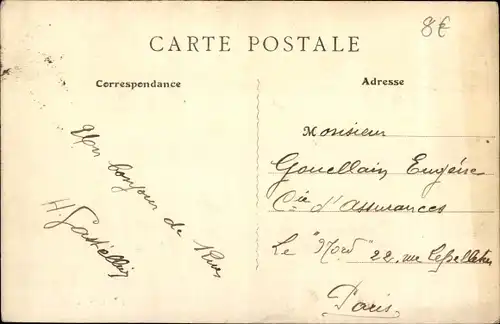 8€
CARTE POSTALE
Correspondance
Adresse
Un bonjour de
Monsieur
Gouellain Eugène
Cie d'Assurances
Le "Nord" 22, rue Lepelletier
Paris